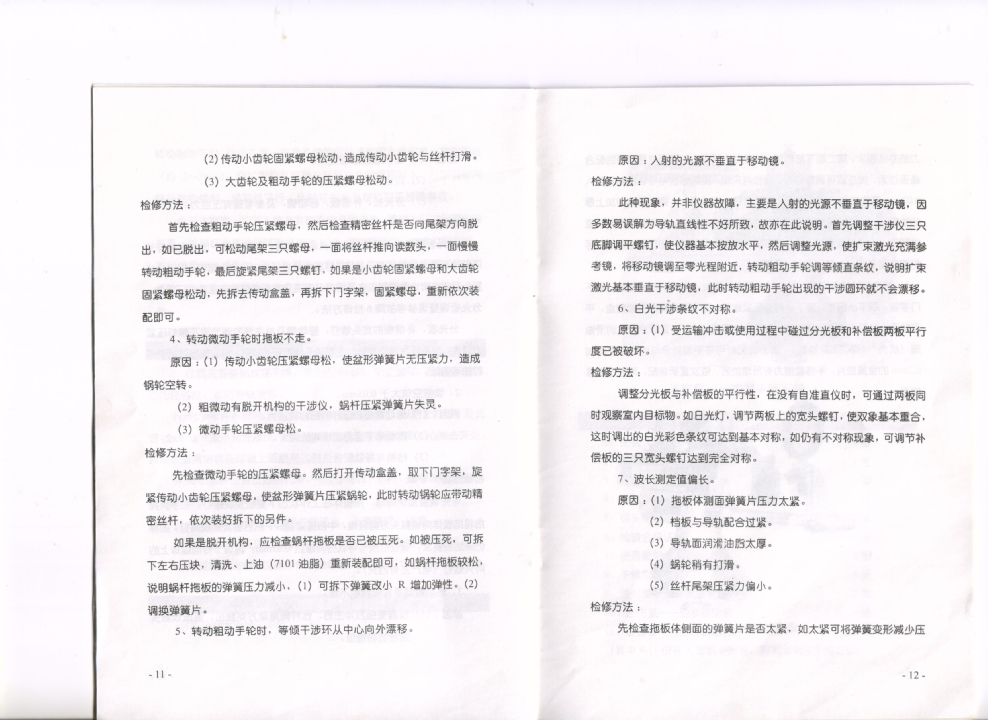 (2)传动小齿轮固紧螺母松动，造成传动小齿轮与丝杆打滑。
(3) 大齿轮及粗动手轮的压紧螺母松动。
检修方法：
首先检查粗动手轮压紧螺母，然后检查精密丝杆是否向尾架方向脱
出，如已脱出，可松动尾架三只螺母，一面将丝杆推向读数头，一面慢慢
转动粗动手轮，最后旋紧尾架三只螺钉，如果是小齿轮固紧螺母和大齿轮
固紧螺母松动，先拆去传动盒盖，再拆下门字架，固紧螺母，重新依次装
配即可。
4、转动微动手轮时拖板不走。
原因：(1) 传动小齿轮压紧螺母松，使盆形弹簧片无压紧力，造成
锅轮空转。
(2) 粗微动有脱开机构的干涉仪，蜗杆压紧弹簧片失灵。
(3) 微动手轮压紧螺母松。
检修方法：
先检查微动手轮的压紧螺母。然后打开传动盒盖，取下门字架，旋
紧传动小齿轮压紧螺母，使盆形弹簧片压紧锅轮，此时转动锅轮应带动精
密丝杆，依次装好拆下的另件。
如果是脱开机构，应检查蜗杆拖板是否已被压死。如被压死，可拆
下左右压块，清洗、上油（7101 油脂）重新装配即可，如蜗杆拖板较松，
说明蜗杆拖板的弹簧压力减小，(1) 可拆下弹簧改小 R 增加弹性。(2)
调换弹簧片。
5、转动粗动手轮时，等倾干涉环从中心向外漂移。
- 11 -
原因：入射的光源不垂直于移动镜。
检修方法：
此种现象，并非仪器故障，主要是入射的光源不垂直于移动镜，因
多数易误解为导轨直线性不好所致，故亦在此说明。首先调整干涉仪三只
底脚调平螺钉，使仪器基本按放水平，然后调整光源，使扩束激光充满参
考镜，将移动镜调至零光程附近，转动粗动手轮调等倾直条纹，说明扩束
激光基本垂直于移动镜，此时转动粗动手轮出现的干涉圆环就不会漂移。
6、白光干涉条纹不对称。
原因：(1) 受运输冲击或使用过程中碰过分光板和补偿板两板平行
度已被破坏。
检修方法：
调整分光板与补偿板的平行性，在没有自准直仪时，可通过两板同
时观察室内目标物。如日光灯，调节两板上的宽头螺钉，使双象基本重合，
这时调出的白光彩色条纹可达到基本对称，如仍有不对称现象，可调节补
偿板的三只宽头螺钉达到完全对称。
7、波长测定值偏长。
原因：(1) 拖板体测面弹簧片压力太紧。
(2) 档板与导轨配合过紧。
(3) 导轨面润滑油脂太厚。
(4) 蜗轮稍有打滑。
(5) 丝杆尾架压紧力偏小。
检修方法：
先检查拖板体侧面的弹簧片是否太紧，如太紧可将弹簧变形减少压
- 12 -